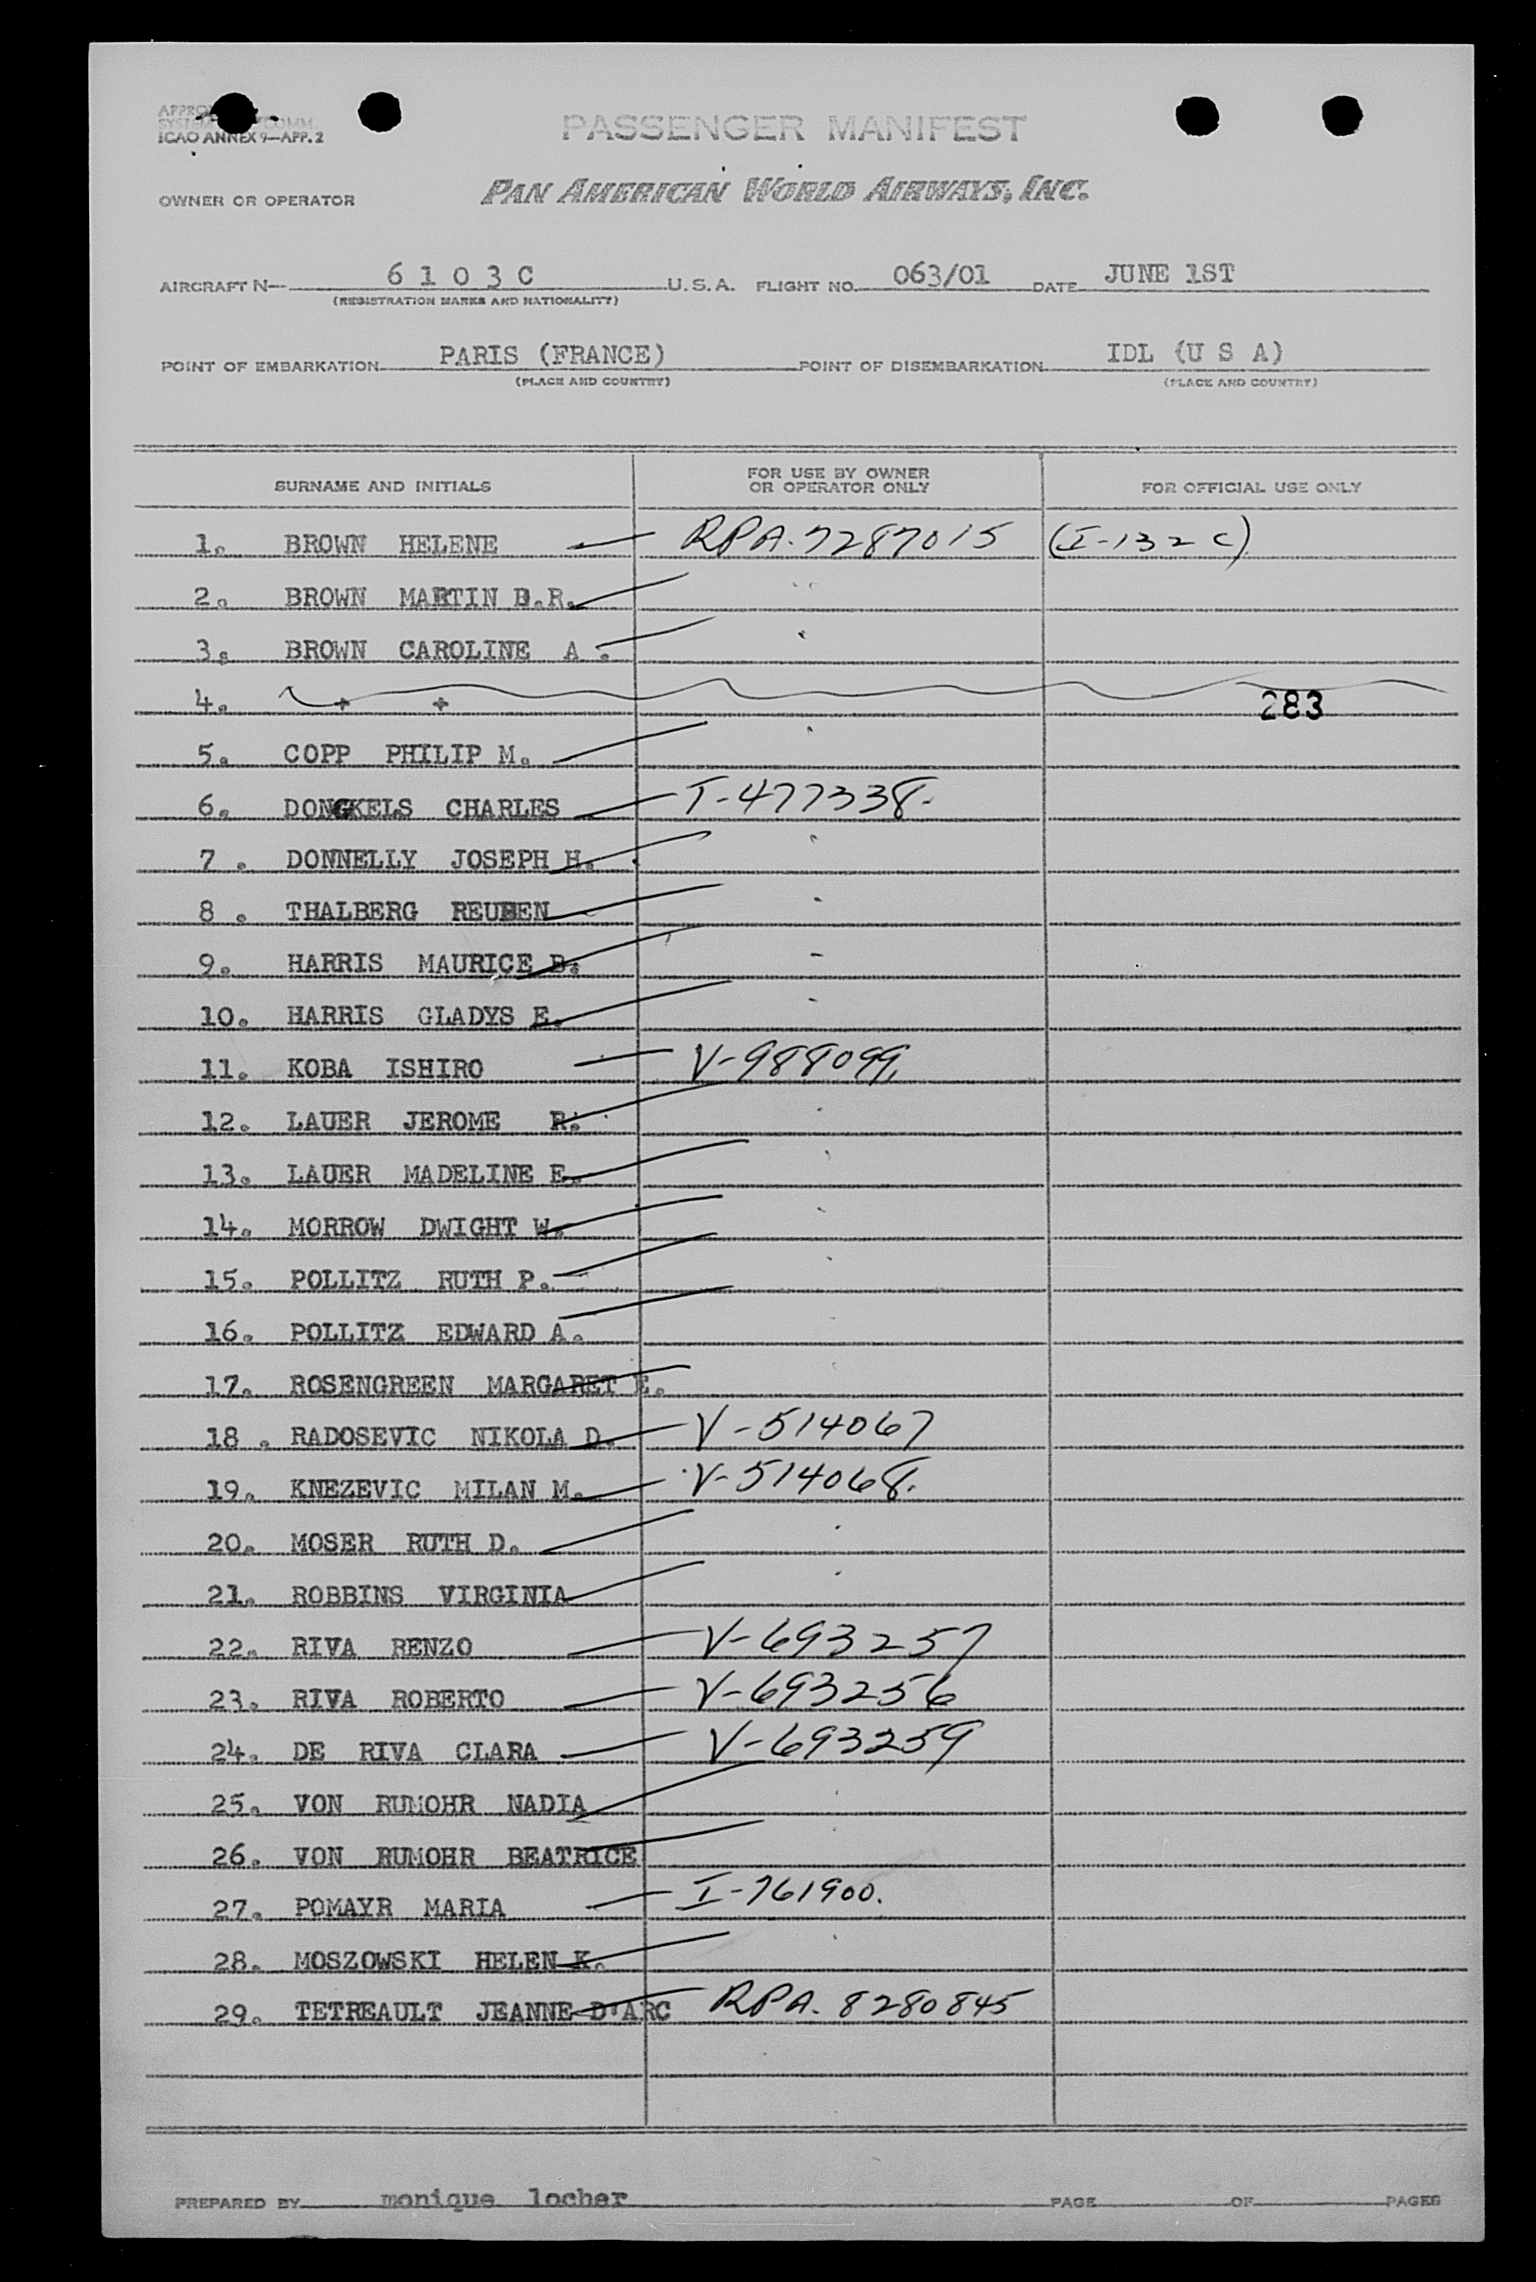 ICAO ANNEX 9—APP. 2
PASSENGER MANIFEST
OWNER OR OPERATOR PAN AMERICAN WORLD AIRWAYS, INC.
AIRCRAFT N— 6 1 0 3 C U.S.A. FLIGHT NO. 063/01 DATE JUNE 1ST
(REGISTRATION MARKS AND NATIONALITY)
POINT OF EMBARKATION PARIS (FRANCE) POINT OF DISEMBARKATION IDL (U S A)
(PLACE AND COUNTRY) (PLACE AND COUNTRY)
SURNAME AND INITIALS FOR USE BY OWNER OR OPERATOR ONLY FOR OFFICIAL USE ONLY
1. BROWN HELENE RPA-7287015 (I-132 C)
2. BROWN MARTIN B.R.
3. BROWN CAROLINE A.
4. + + 283
5. COPP PHILIP M.
6. DONGKELS CHARLES T-477338.
7. DONNELLY JOSEPH H.
8. THALBERG REUBEN
9. HARRIS MAURICE B.
10. HARRIS GLADYS E.
11. KOBA ISHIRO V-988099.
12. LAUER JEROME R.
13. LAUER MADELINE E.
14. MORROW DWIGHT W.
15. POLLITZ RUTH P.
16. POLLITZ EDWARD A.
17. ROSENGREEN MARGARET E.
18. RADOSEVIC NIKOLA D. V-514067
19. KNEZEVIC MILAN M. V-514068.
20. MOSER RUTH D.
21. ROBBINS VIRGINIA
22. RIVA RENZO V-693257
23. RIVA ROBERTO V-693256
24. DE RIVA CLARA V-693259
25. VON RUMOHR NADIA
26. VON RUMOHR BEATRICE
27. POMAYR MARIA I-761900.
28. MOSZOWSKI HELEN K.
29. TETREAULT JEANNE D'ARC RPA. 8280845
PREPARED BY monique locher PAGE OF PAGES